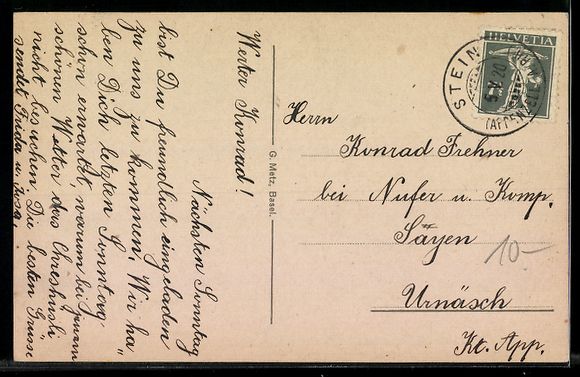 Werter Konrad!
Nächsten Sonntag
bist Du freundlich eingeladen
zu uns zu kommen. Wir ha„
ben Dich letzten Sonntag
schon erwartet, warum bei
schönen Wetter das
nicht besuchen. Die besten Grüsse
sendet Frida u. Rosa.
G. Metz, Basel.
HELVETIA
STEIN
(APPENZELL)
Herrn
Konrad Frehner
bei Nufer u. Komp.
Säyen
Urnäsch
Kt. App.
10-